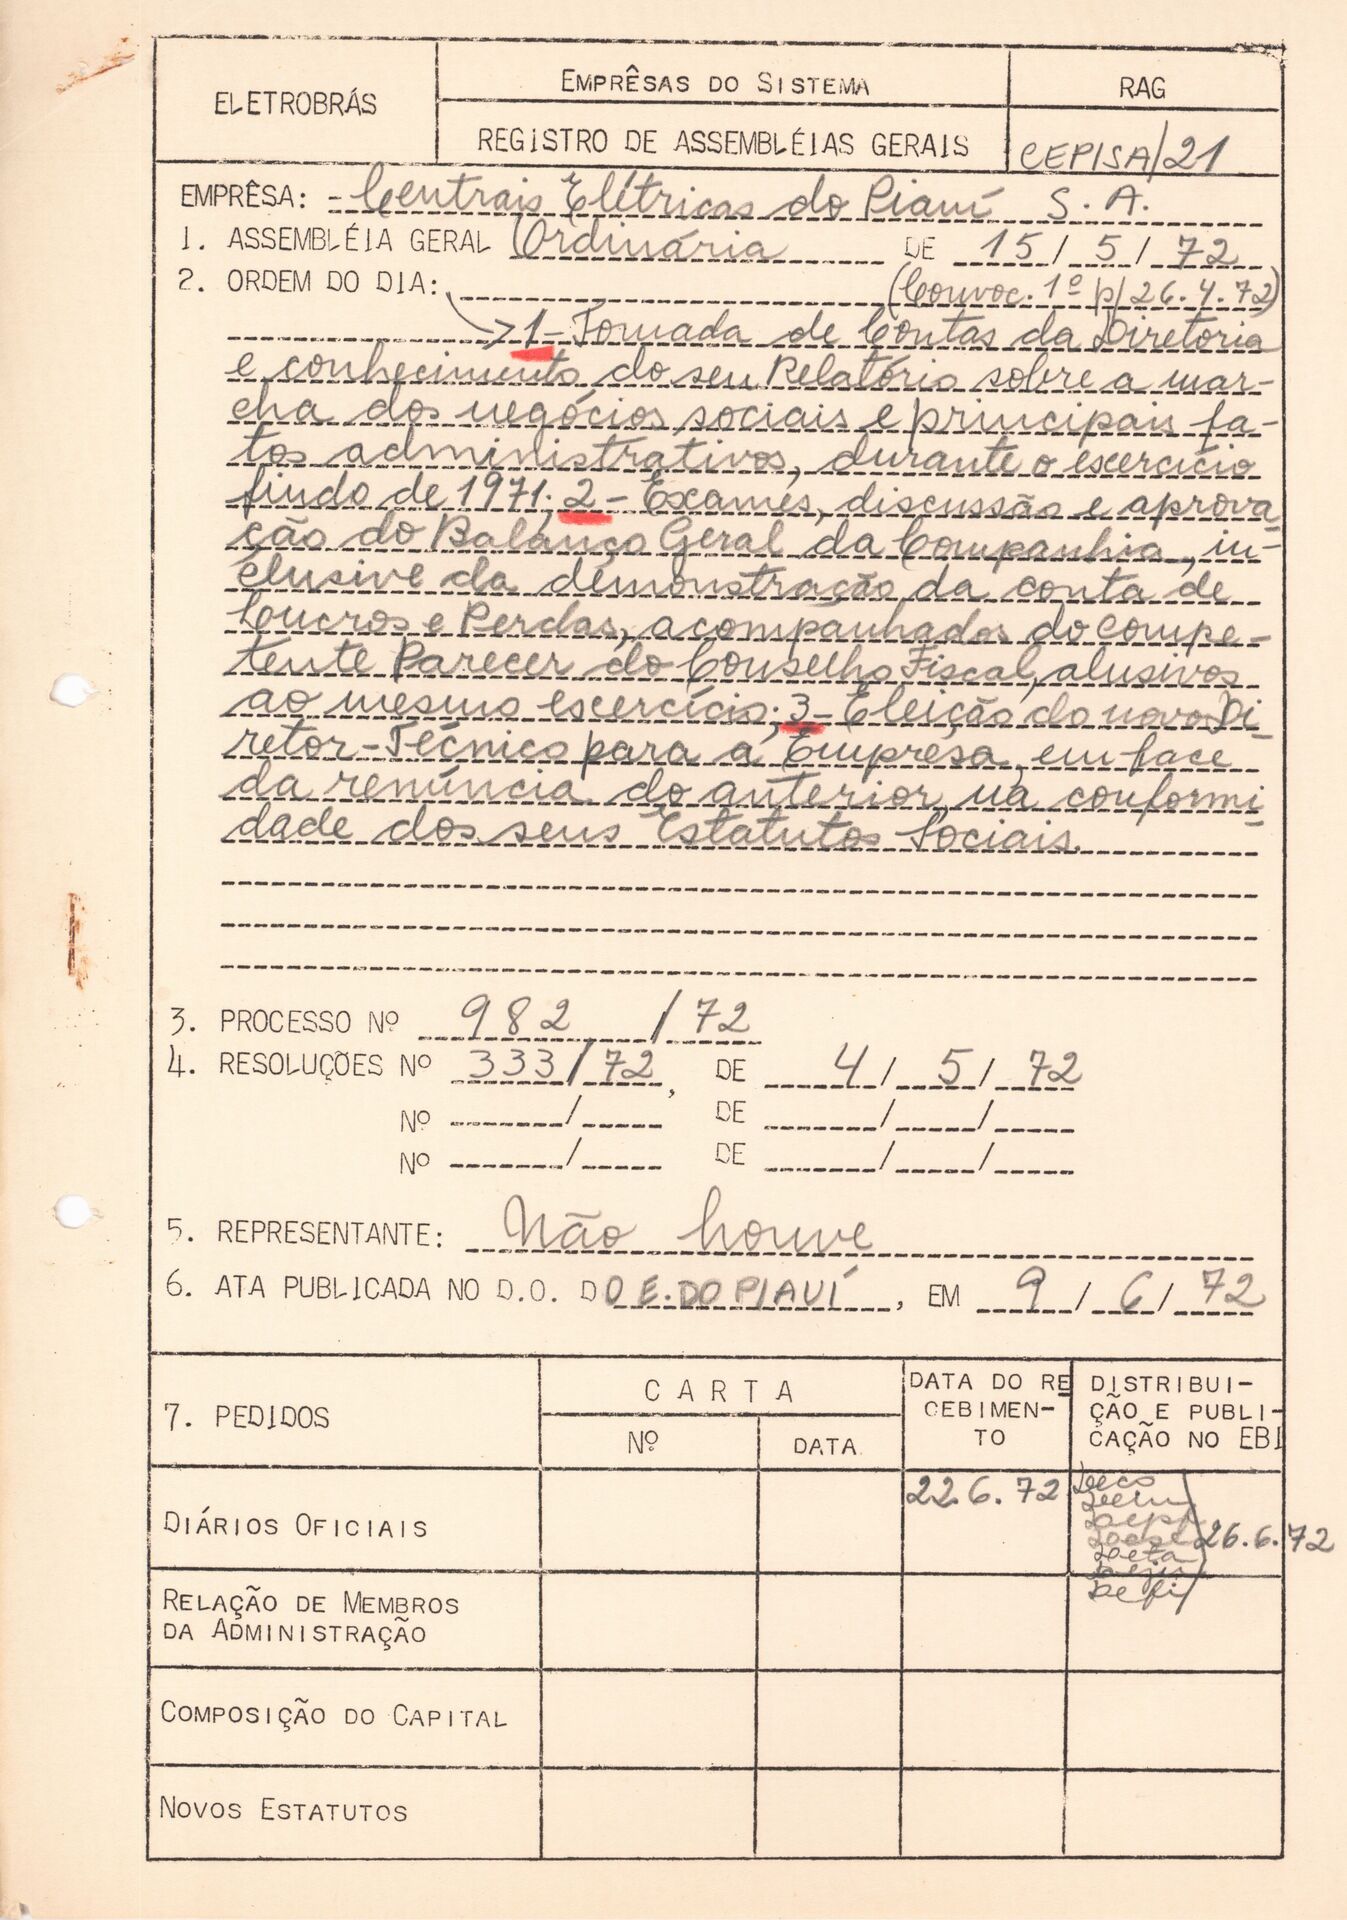 ELETROBRÁS
EMPRÊSAS DO SISTEMA
RAG
REGISTRO DE ASSEMBLÉIAS GERAIS
CEPISA/21
EMPRÊSA: - Centrais Elétricas do Piauí S. A.
1. ASSEMBLÉIA GERAL Ordinária DE 15/5/72
2. ORDEM DO DIA: (Convoc. 1º p/ 26.4.72)
1 - Tomada de Contas da Diretoria
e conhecimento do seu Relatório sobre a mar-
cha dos negócios sociais e principais fa-
tos administrativos, durante o exercício
findo de 1971; 2 - Exames, discussão e aprova-
ção do Balanço Geral da Companhia, in-
clusive da demonstração da conta de
Lucros e Perdas, acompanhados do compe-
tente Parecer do Conselho Fiscal, alusivos
ao mesmo exercício; 3 - Eleição do novo Di-
retor-Técnico para a Empresa, em face
da renúncia do anterior, na conformi-
dade dos seus Estatutos Sociais.
3. PROCESSO Nº 982 /72
4. RESOLUÇÕES Nº 333/72, DE 4/5/72
Nº / DE / /
Nº / DE / /
5. REPRESENTANTE: Não houve
6. ATA PUBLICADA NO D.O. DO E. DO PIAUÍ, EM 9/6/72
7. PEDIDOS
CARTA
Nº
DATA
DATA DO RE
CEBIMEN-
TO
DISTRIBUI-
ÇÃO E PUBLI-
CAÇÃO NO EBI
DIÁRIOS OFICIAIS
22.6.72
26.6.72
RELAÇÃO DE MEMBROS
DA ADMINISTRAÇÃO
COMPOSIÇÃO DO CAPITAL
NOVOS ESTATUTOS